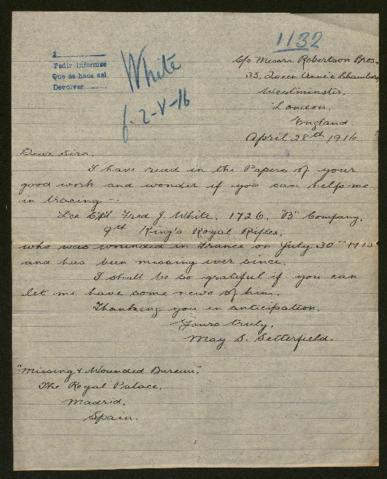 1132
1
Pedir informes
Que se haga así
Devolver
White
f. 2-V-16
c/o Messrs Robertson Bros.,
33, Queen Anne's Chambers
Westminster,
London,
England.
April 28th 1916.
Dear Sirs,
I have read in the Papers of your
good work and wonder if you can help me
in tracing:-
Lce Cpl. Fred J. White, 1726, "B" Company,
9th King's Royal Rifles,
who was wounded in France on July 30th 1915
and has been missing ever since.
I shall be so grateful if you can
let me have some news of him.
Thanking you in anticipation,
Yours truly,
May S. Setterfield.
"Missing & Wounded Bureau,"
The Royal Palace,
Madrid,
Spain.